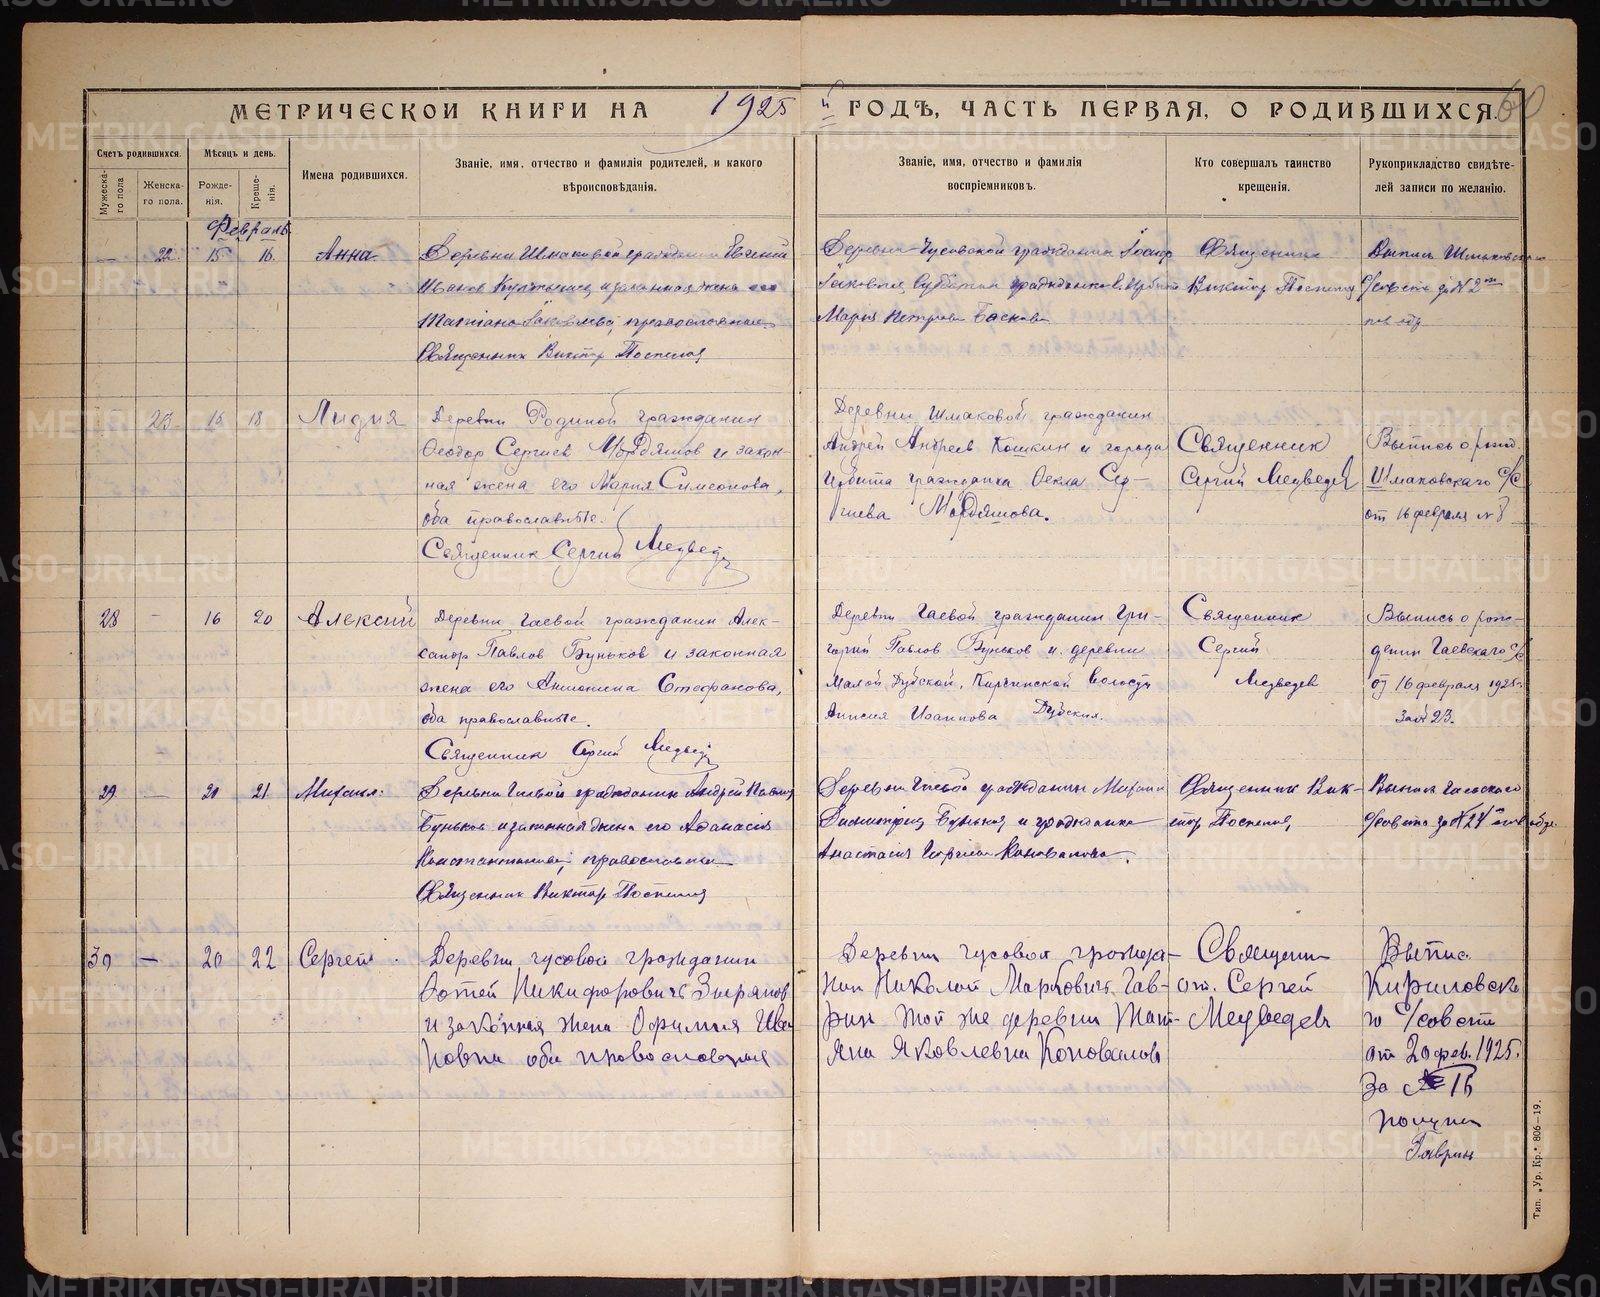 МЕТРИЧЕСКОЙ КНИГИ НА 1925 й ГОДЪ, ЧАСТЬ ПЕРВАЯ, О РОДИВШИХСЯ. 60
Счетъ родившихся.
Мужеска-
го пола
Женска-
го пола.
Мѣсяцъ и день.
Рожде-
нія.
Креще-
нія.
Имена родившихся.
Званіе, имя, отчество и фамилія родителей, и какого
вѣроисповѣданія.
Званіе, имя, отчество и фамилія
воспріемниковъ.
Кто совершалъ таинство
крещенія.
Рукоприкладство свидѣте-
лей записи по желанію.
Февраль.
22 15 16 Анна
Деревни Шмаковой гражданин Евгений
Иванов и законная жена его
Татиана Яковлева, православные
Священник Виктор Поспелов
Деревни Чусовской гражданин Іосиф
Мария Петрова
Священник
Виктор Поспелов
Выпись Шмаковского
с/совета за № 2
23 16 18 Лидия
Деревни Родиной гражданин
Ѳеодор Сергиев Мордяшов и закон-
ная жена его Мария Симеонова,
оба православные.
Священник Сергий Медведев
Деревни Шмаковой гражданин
Андрей Андреев Кошкин и города
Ирбита гражданка Ѳекла Сер-
гиева Мордяшова.
Священник
Сергий Медведев
Выпись о рожд.
Шмаковскаго С/С
от 16 февраля № 8
28 - 16 20 Алексий
Деревни Гаевой гражданин Алек-
сандр Павлов Буньков и законная
жена его Антонина Стефанова,
оба православные.
Священник Сергий Медведев
Деревни Гаевой гражданин Гри-
горий Павлов Буньков и деревни
Малой Дубской, Киргинской волости
Анисия Иванова Дубских.
Священник
Сергий
Медведев
Выпись о рож-
дении Гаевскаго С/С
от 16 февраля 1925 г.
за № 23.
29 — 20 21 Михаил
Деревни Гаевой гражданин Андрей Павлов
Буньков и законная жена его Афанасия
Константинова, православные
Священник Виктор Поспелов
Деревни Гаевой гражданин Михаил
Димитриев Буньков и гражданка
Анастасия Коновалова.
Священник Вик-
тор Поспелов
Выпись Гаевского
с/совета за № 24
30 — 20 22 Сергей
Деревни чусовой гражданин
Фотей Никифоровичь Зырянов
и законная жена Офимия Ива
новна оба православныя
Деревни чусовой гражда-
нин Николай Марковичь Гав-
рин той же деревни Тать-
яна Яковлевна Коновалова
Священ
Сергей
Медведевъ
Выпис.
Кириловска
го с/совета
от 20 фев. 1925.
за № 16
получил
Гаврин
Тип. „Ур. Кр.“ 806—19.
METRIKI.GASO-URAL.RU